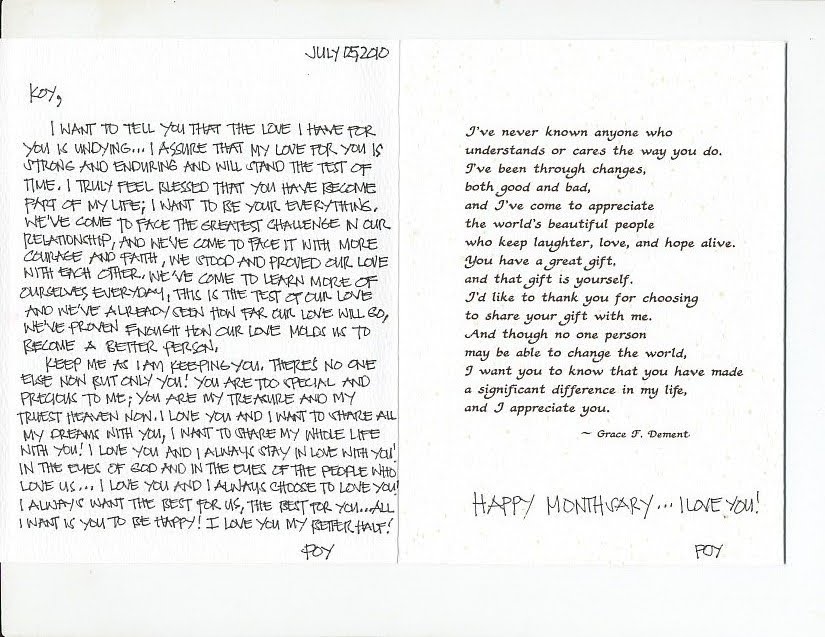 JULY 05, 2010
KOY,
I WANT TO TELL YOU THAT THE LOVE I HAVE FOR
YOU IS UNDYING... I ASSURE THAT MY LOVE FOR YOU IS
STRONG AND ENDURING AND WILL STAND THE TEST OF
TIME. I TRULY FEEL BLESSED THAT YOU HAVE BECOME
PART OF MY LIFE; I WANT TO BE YOUR EVERYTHING.
WE'VE COME TO FACE THE GREATEST CHALLENGE IN OUR
RELATIONSHIP, AND WE'VE COME TO FACE IT WITH MORE
COURAGE AND FAITH, WE STOOD AND PROVED OUR LOVE
WITH EACH OTHER. WE'VE COME TO LEARN MORE OF
OURSELVES EVERYDAY, THIS IS THE TEST OF OUR LOVE
AND WE'VE ALREADY SEEN HOW FAR OUR LOVE WILL GO,
WE'VE PROVEN ENOUGH HOW OUR LOVE MOLDS US TO
BECOME A BETTER PERSON.
KEEP ME AS I AM KEEPING YOU. THERE'S NO ONE
ELSE NOW BUT ONLY YOU! YOU ARE TOO SPECIAL AND
PRECIOUS TO ME; YOU ARE MY TREASURE AND MY
TRUEST HEAVEN NOW. I LOVE YOU AND I WANT TO SHARE ALL
MY DREAMS WITH YOU, I WANT TO SHARE MY WHOLE LIFE
WITH YOU! I LOVE YOU AND I ALWAYS STAY IN LOVE WITH YOU!
IN THE EYES OF GOD AND IN THE EYES OF THE PEOPLE WHO
LOVE US... I LOVE YOU AND I ALWAYS CHOOSE TO LOVE YOU!
I ALWAYS WANT THE BEST FOR US, THE BEST FOR YOU...ALL
I WANT IS YOU TO BE HAPPY! I LOVE YOU MY BETTER HALF!
POY
I've never known anyone who
understands or cares the way you do.
I've been through changes,
both good and bad,
and I've come to appreciate
the world's beautiful people
who keep laughter, love, and hope alive.
You have a great gift,
and that gift is yourself.
I'd like to thank you for choosing
to share your gift with me.
And though no one person
may be able to change the world,
I want you to know that you have made
a significant difference in my life,
and I appreciate you.
~ Grace F. Dement
HAPPY MONTHSARY... I LOVE YOU!
POY